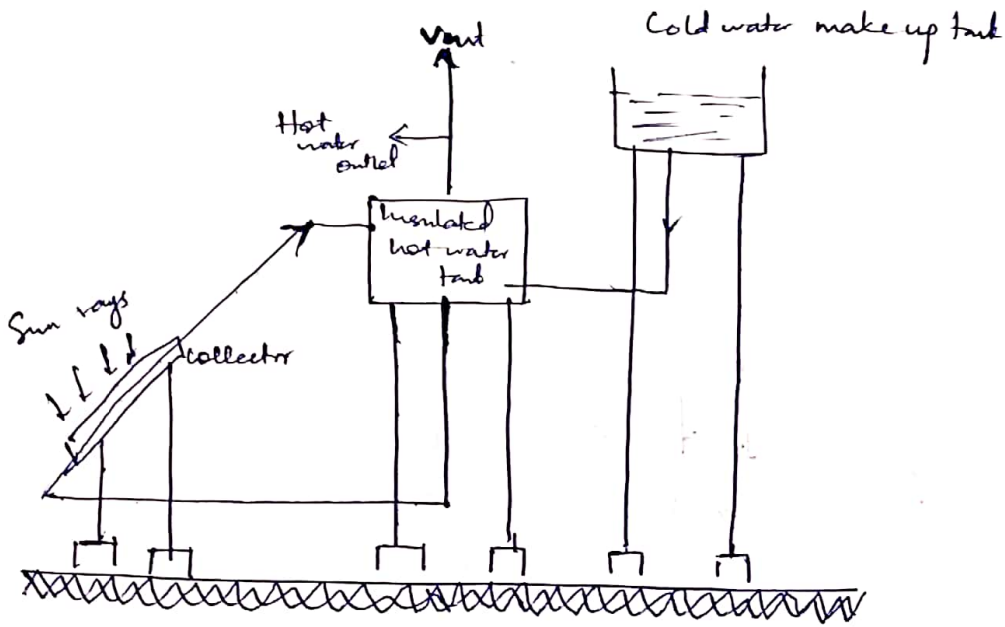 Cold water make up tank
Vent
Hot
water
outlet
Insulated
hot water
tank
Sun rays
collector